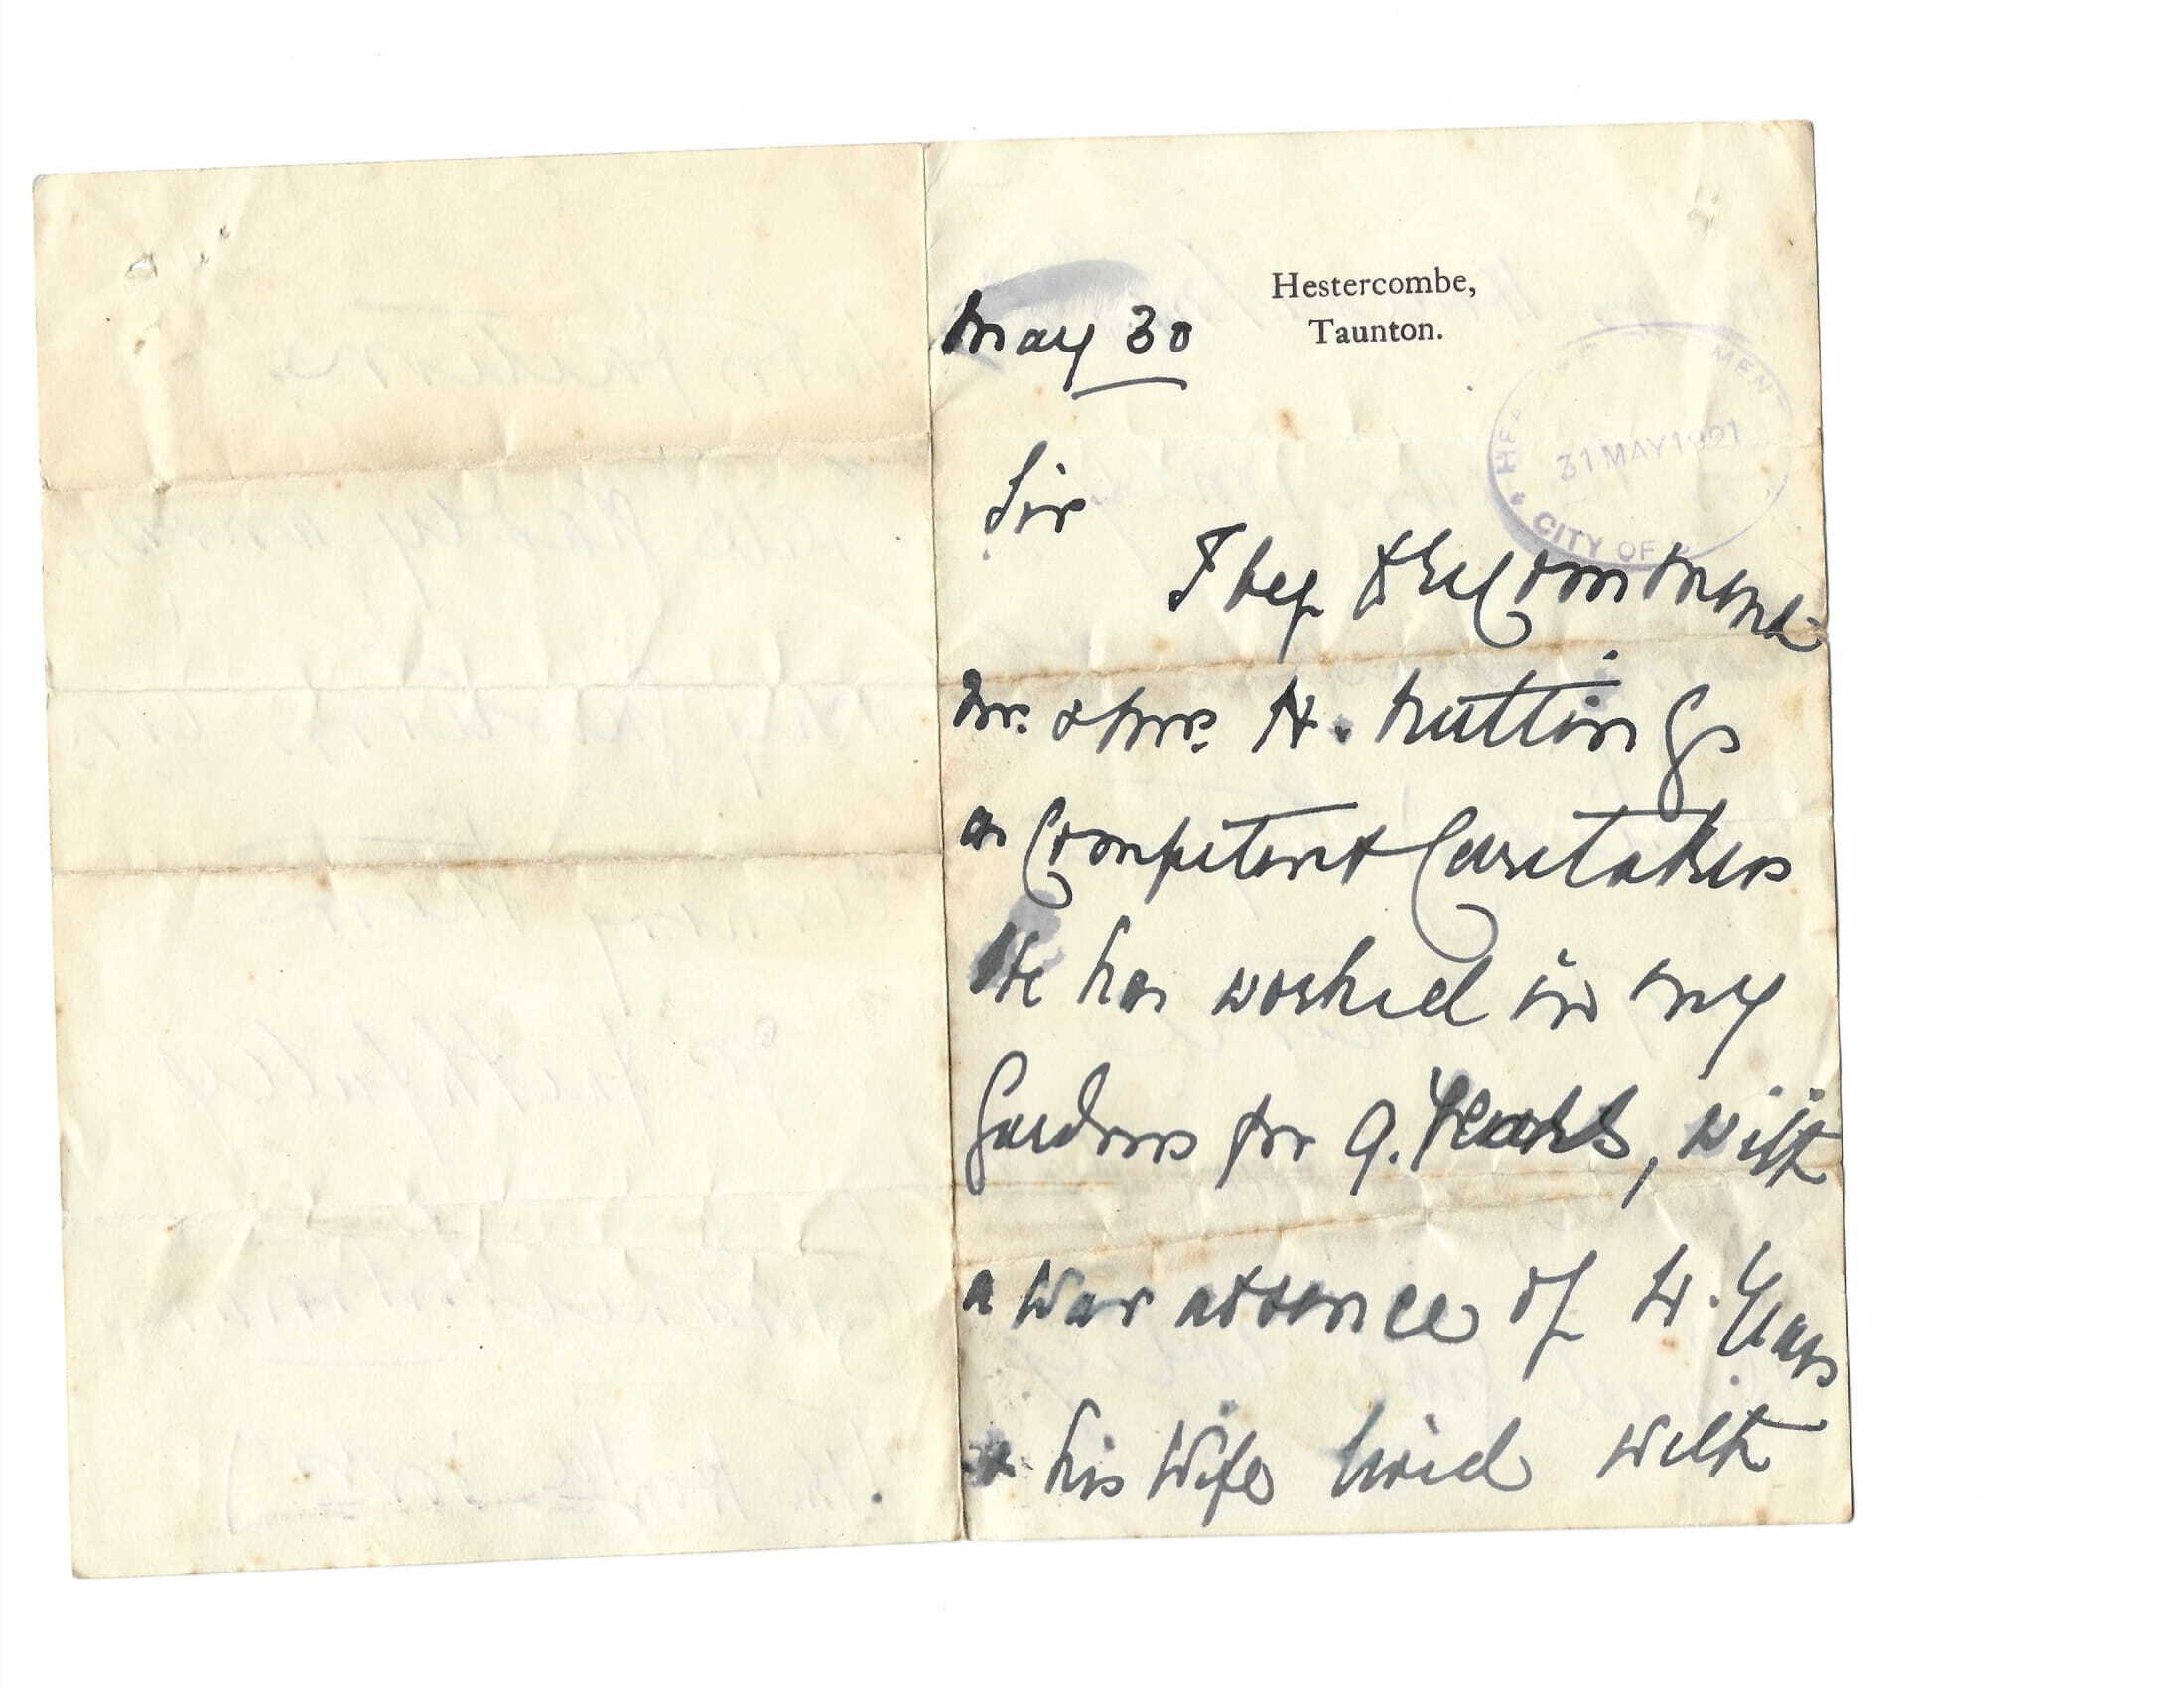 Hestercombe,
Taunton.
May 30
MEN
31 MAY 1921
CITY OF
Sir
I beg to recommend
Mr. & Mrs. H. Nuttings
as Competent Caretakers
He has worked in my
Gardens for 9. Years, with
a War absence of 4. Years
& his Wife lived with